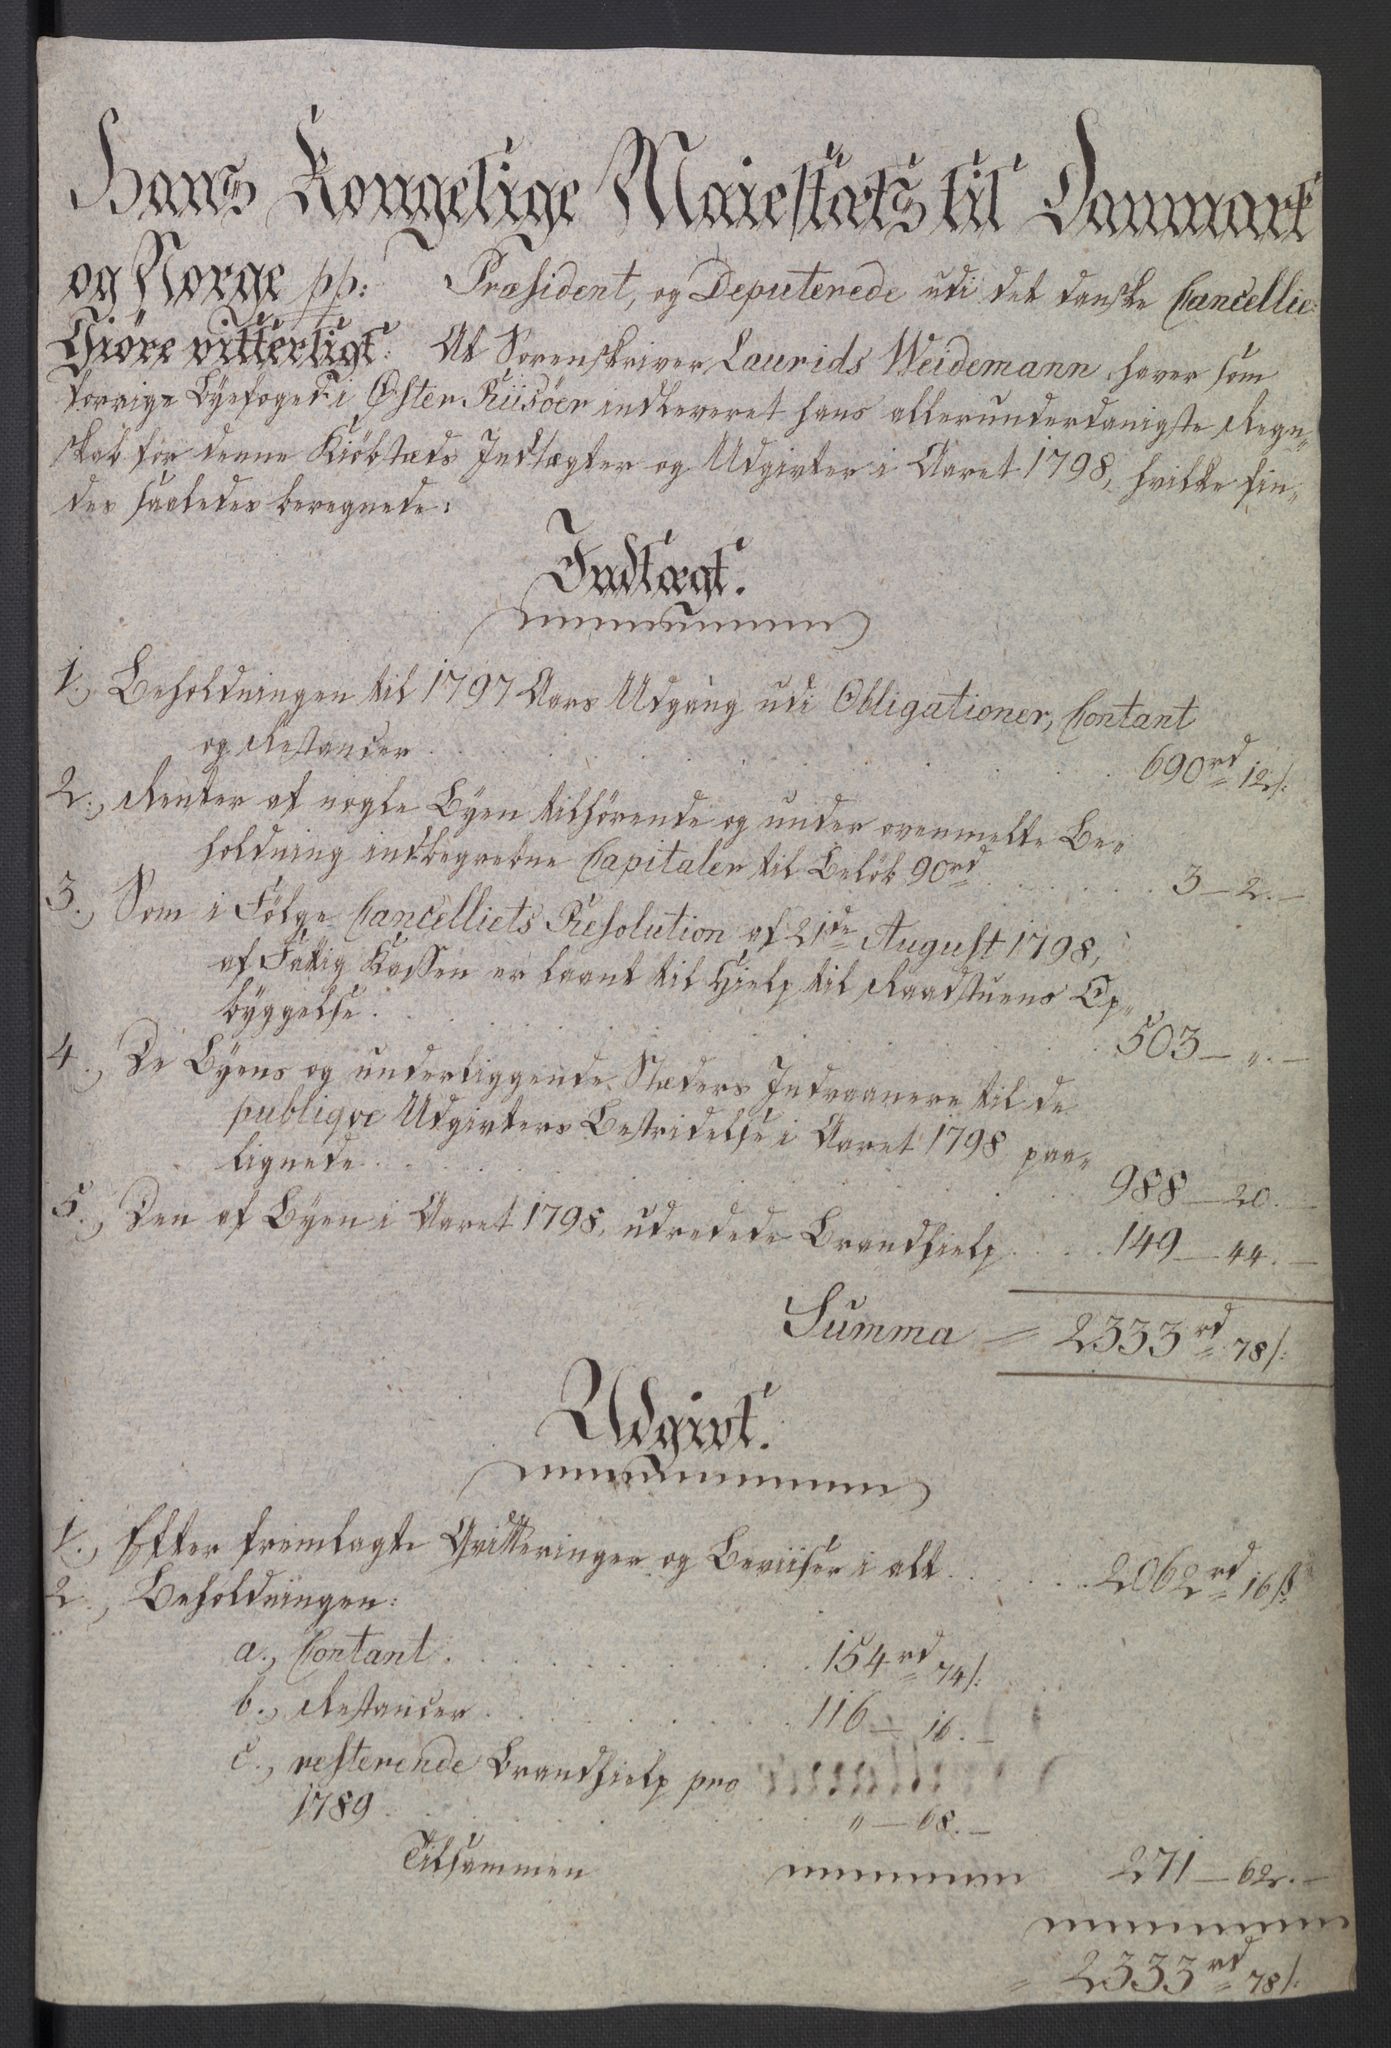 Hans Kongelige Maiestæts til Danmark
og Norge pp: Præsident, og Deputerede udi det danske Cancellie:
Giöre vitterligt: At Sorenskriver Laurids Weidemann, haver som
forrige Byefoged i Öster Riisöer indleveret hans allerunderdanigste Regn„
skab for denne Kiöbstæds Indtægter og Udgivter i Aaret 1798, hvilke fin„
des saaledes beregnede:
Indtægt.
1., Beholdningen til 1797 Aars Udgang udi Obligationer, Contant
og Restancer . . . 690 rd 12 s:
2., Renter af nogle Byen tilhörende og under ovenmelte Be„
holdning indbegrebne Capitaler til Belöb 90 rd . . . 3 — 2. —
3., Som i Fölge Cancelliets Resolution af 21de August 1798,
af Fattig Kassen er laant til Hielp til Raadstuens Op„
byggelse . . . 503 — „. —
4., De Byens og underliggende Stæders Indvaanere til de
publiqve Udgivters Bestridelse i Aaret 1798 paa„
lignede . . . 988 — 20. —
5., Den af Byen i Aaret 1798, udredede Brandhielp . . . 149 — 44. —
Summa = 2333 rd 78 s:
Udgivt.
1., Efter fremlagte Qvitteringer og Beviiser i alt . . . 2062 rd 16 ß
2., Beholdningen:
a., Contant . . . 154 rd 74 s:
b., Restancer . . . 116 — 16. —
c., resterende Brandhielp pro
1789 . . . „ — 68. —
Tilsammen 271 — 62. —
= 2333 rd 78 s: